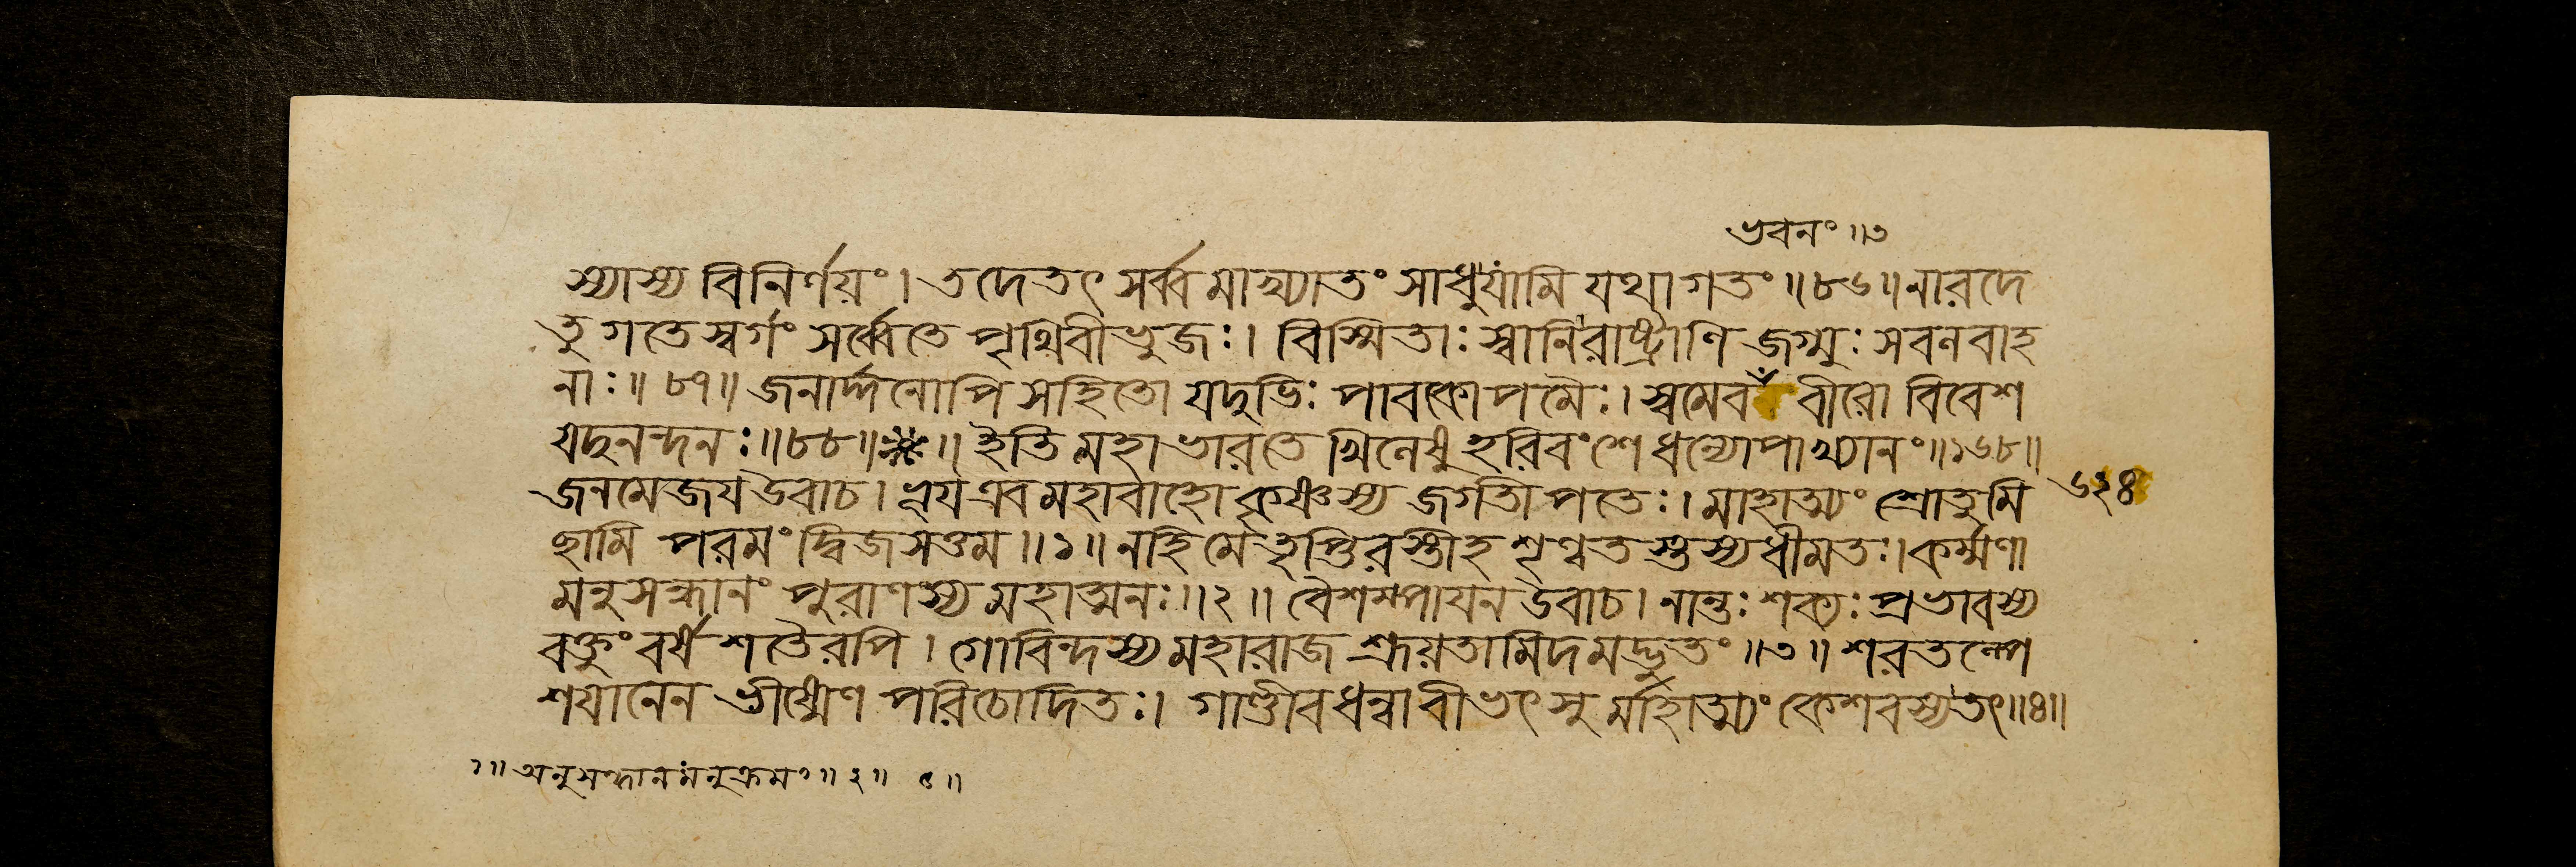 ভবনং ॥৩
স্যাস্য বিনির্ণয়ং। তদেতৎ সর্ব্বমাখ্যাতং সাধুযামি যথাগতং ॥৮৬॥ নারদে
তু গতে স্বর্গং সর্ব্বেতে পৃথিবীভুজঃ। বিস্মিতাঃ স্বানি রাষ্ট্রাণি জগ্মুঃ সবনবাহ
নাঃ ॥৮৭॥ জনার্দ্দনোপি সহিতো যদুভিঃ পাবকোপমৈঃ। স্বমেব বীরো বিবেশ
যদুনন্দনঃ ॥৮৮॥ ॥ ইতি মহাভারতে খিলেষু হরিবংশে ধন্যোপাখ্যানং ॥১৬৮॥
জনমেজয উবাচ। ভূয এব মহাবাহো কৃষ্ণস্য জগতীপতেঃ। মাহাত্ম্যং শ্রোতুমি
৬২৪
ছামি পরমং দ্বিজসত্তম ॥১॥ নহি মে তৃপ্তিরস্তীহ শৃণ্বতস্তস্য ধীমতঃ। কর্ম্মণা
মনুসন্ধানং পুরাণস্য মহাত্মনঃ ॥২॥ বৈশম্পাযন উবাচ। নান্তঃ শক্যঃ প্রভাবস্য
বক্তুং বর্ষশতৈরপি। গোবিন্দস্য মহারাজ শ্রূয়তামিদমদ্ভুতং ॥৩॥ শরতল্পে
শযানেন ভীষ্মেণ পরিচোদিতঃ। গাণ্ডীবধন্বা বীভৎসু র্মাহাত্ম্যং কেশবস্য তৎ ॥৪॥
১॥ অনুসন্ধানমনুক্রমং ॥ ২॥ ৫॥